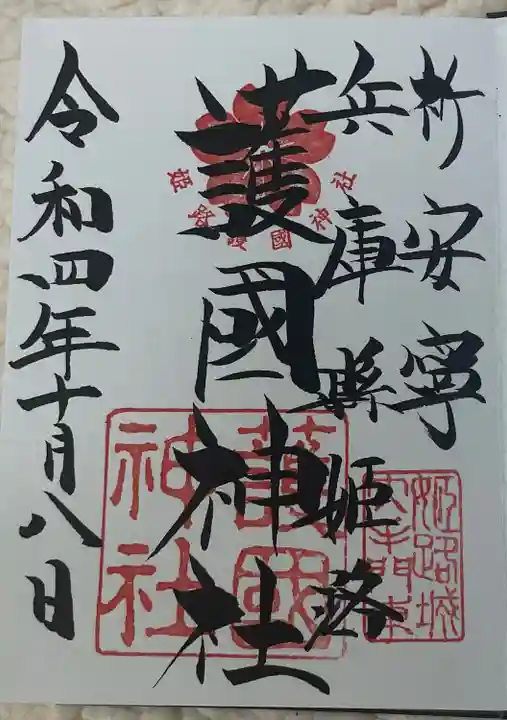 祈安寧
兵庫縣姫路
護國神社
姫路護國神社
護國神社
姫路城
大手門東
令和四年十月八日